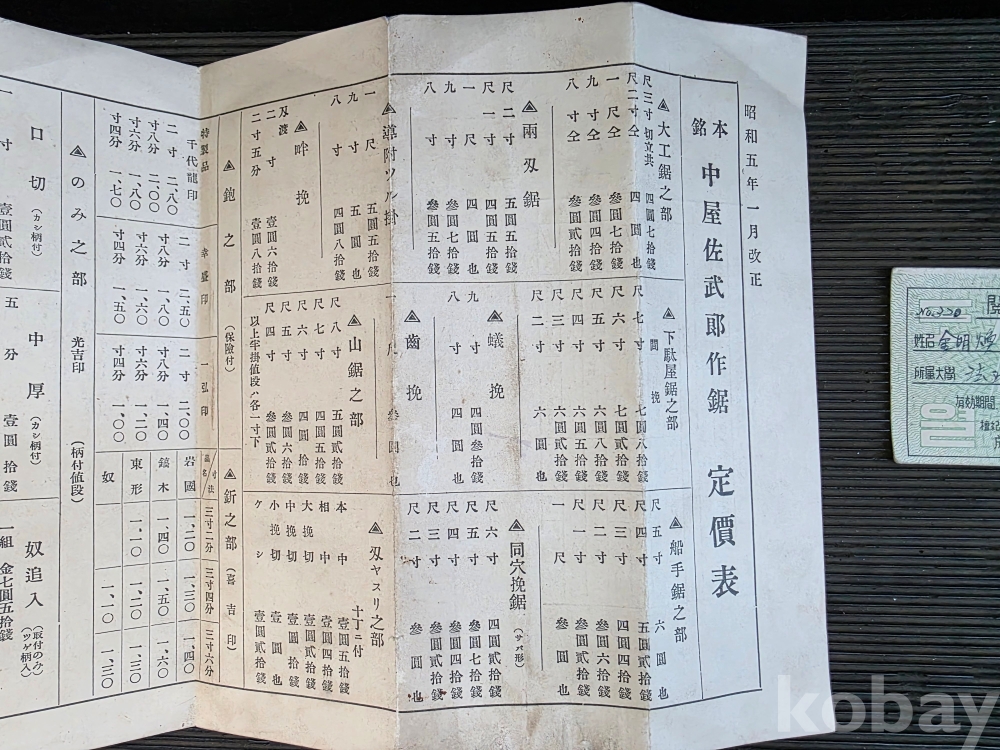 昭和五年一月改正
本銘 中屋佐武郎作鋸 定價表
▲大工鋸之部
尺三寸切立共 四圓七拾錢
尺二寸仝 四圓也
一尺仝 參圓七拾錢
九寸仝 參圓四拾錢
八寸仝 參圓貳拾錢
▲兩刄鋸
尺二寸 五圓五拾錢
尺一寸 四圓五拾錢
一尺 四圓也
九寸 參圓七拾錢
八寸 參圓五拾錢
▲導附ツル掛
一尺 五圓五拾錢
九寸 五圓也
八寸 四圓八拾錢
▲吽挽
刄渡二寸 壹圓六拾錢
二寸五分 壹圓八拾錢
▲下駄屋鋸之部
尺七寸 七圓八拾錢
尺六寸 七圓貳拾錢
尺五寸 六圓八拾錢
尺三寸 六圓貳拾錢
尺二寸 六圓也
▲蟻挽
九寸 四圓參拾錢
八寸 四圓也
▲齒挽
一尺 參圓也
▲山鋸之部
尺八寸 五圓貳拾錢
尺七寸 四圓五拾錢
尺六寸 四圓貳拾錢
尺五寸 參圓六拾錢
尺四寸 參圓貳拾錢
以上牢掛値段ハ各一寸下
▲船手鋸之部
尺五寸 六圓也
尺四寸 五圓貳拾錢
尺三寸 四圓四拾錢
尺二寸 四圓也
尺一寸 參圓六拾錢
一尺 參圓也
▲同穴挽鋸 (サバ形)
尺六寸 四圓貳拾錢
尺五寸 參圓七拾錢
尺四寸 參圓也
尺三寸 參圓貳拾錢
尺二寸 參圓也
▲刄ヤスリ之部
十丁ニ付
本中 壹圓五拾錢
相中 壹圓四拾錢
大挽切 壹圓貳拾錢
中挽切 壹圓拾錢
小挽切 壹圓也
ケシ 壹圓貳拾錢
▲鉋之部 (保險付)
特製品
千代龍印 幸盛印 一弘印
二寸 二、八〇 二寸 二、五〇 二寸 二、〇〇
寸八分 二、〇〇 寸八分 一、八〇 寸八分 一、四〇
寸六分 一、八〇 寸六分 一、六〇 寸六分 一、二〇
寸四分 一、七〇 寸四分 一、五〇 寸四分 一、〇〇
▲釿之部 (喜吉印)
品名/寸法 三寸二分 三寸四分 三寸六分
岩國 一、二〇 一、三〇 一、四〇
鎬木 一、四〇 一、五〇 一、六〇
東形 一、一〇 一、二〇 一、三〇
奴 一、一〇 一、三〇
▲のみ之部 光吉印 (柄付値段)
口切 (カシ柄付) 中厚 (カシ柄付) 奴追入 (取付のみ、ツゲ柄入)
一寸 壹圓貳拾錢 五分 壹圓拾錢 一組 金七圓五拾錢
No.220
姓名
所屬大學
有効期間
kobay